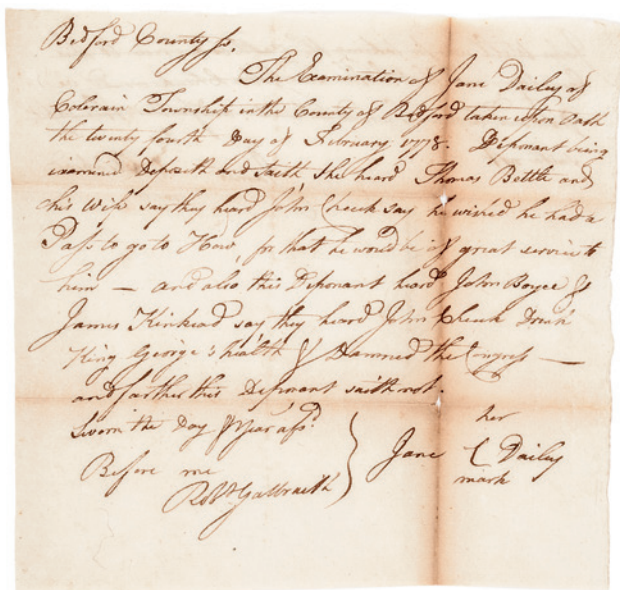 Bedford County Ss.
The Examination of Jane Dailey of
Colerain Township in the County of Bedford taken upon Oath
the twenty fourth Day of February 1778. Deponant being
examined Deposeth and saith She heard Thomas Bettle and
his Wife say they heard John Cheek say he wished he had a
Pass to go to How, for that he would be of great service to
him — and also this Deponant heard John Boyce &
James Kinkead say they heard John Cheek Drink
King George's health & Damned the Congress —
and farther this Deponant saith not
Sworn the Day & Year afsd.
Before me
Robt Galbraith
her
Jane ( Dailey
mark